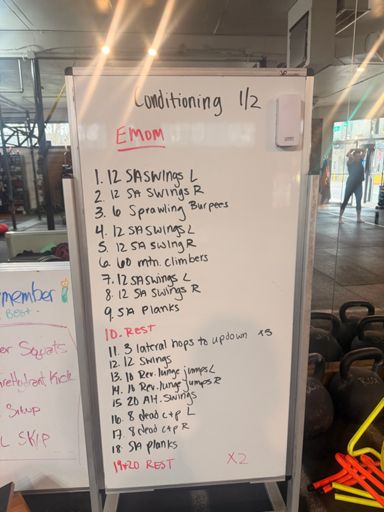 Conditioning 1/2
EMOM
1. 12 SA SWings L
2. 12 SA SWings R
3. 6 Sprawling Burpees
4. 12 SA SWings L
5. 12 SA SWing R
6. 60 mtn. climbers
7. 12 SA SWings L
8. 12 SA SWings R
9. SA Planks
10. REST
11. 3 latral hops to updown x3
12. 12 Swings
13. 10 Rev. lunge jumps L
14. 10 Rev. lunge jumps R
15 20 Alt. Swings
16. 8 dead c+p L
17. 8 dead c+p R
18 SA planks
19+20 REST X2
member
Best
er Squats
Hydrant Kick
Situp
L SKIP